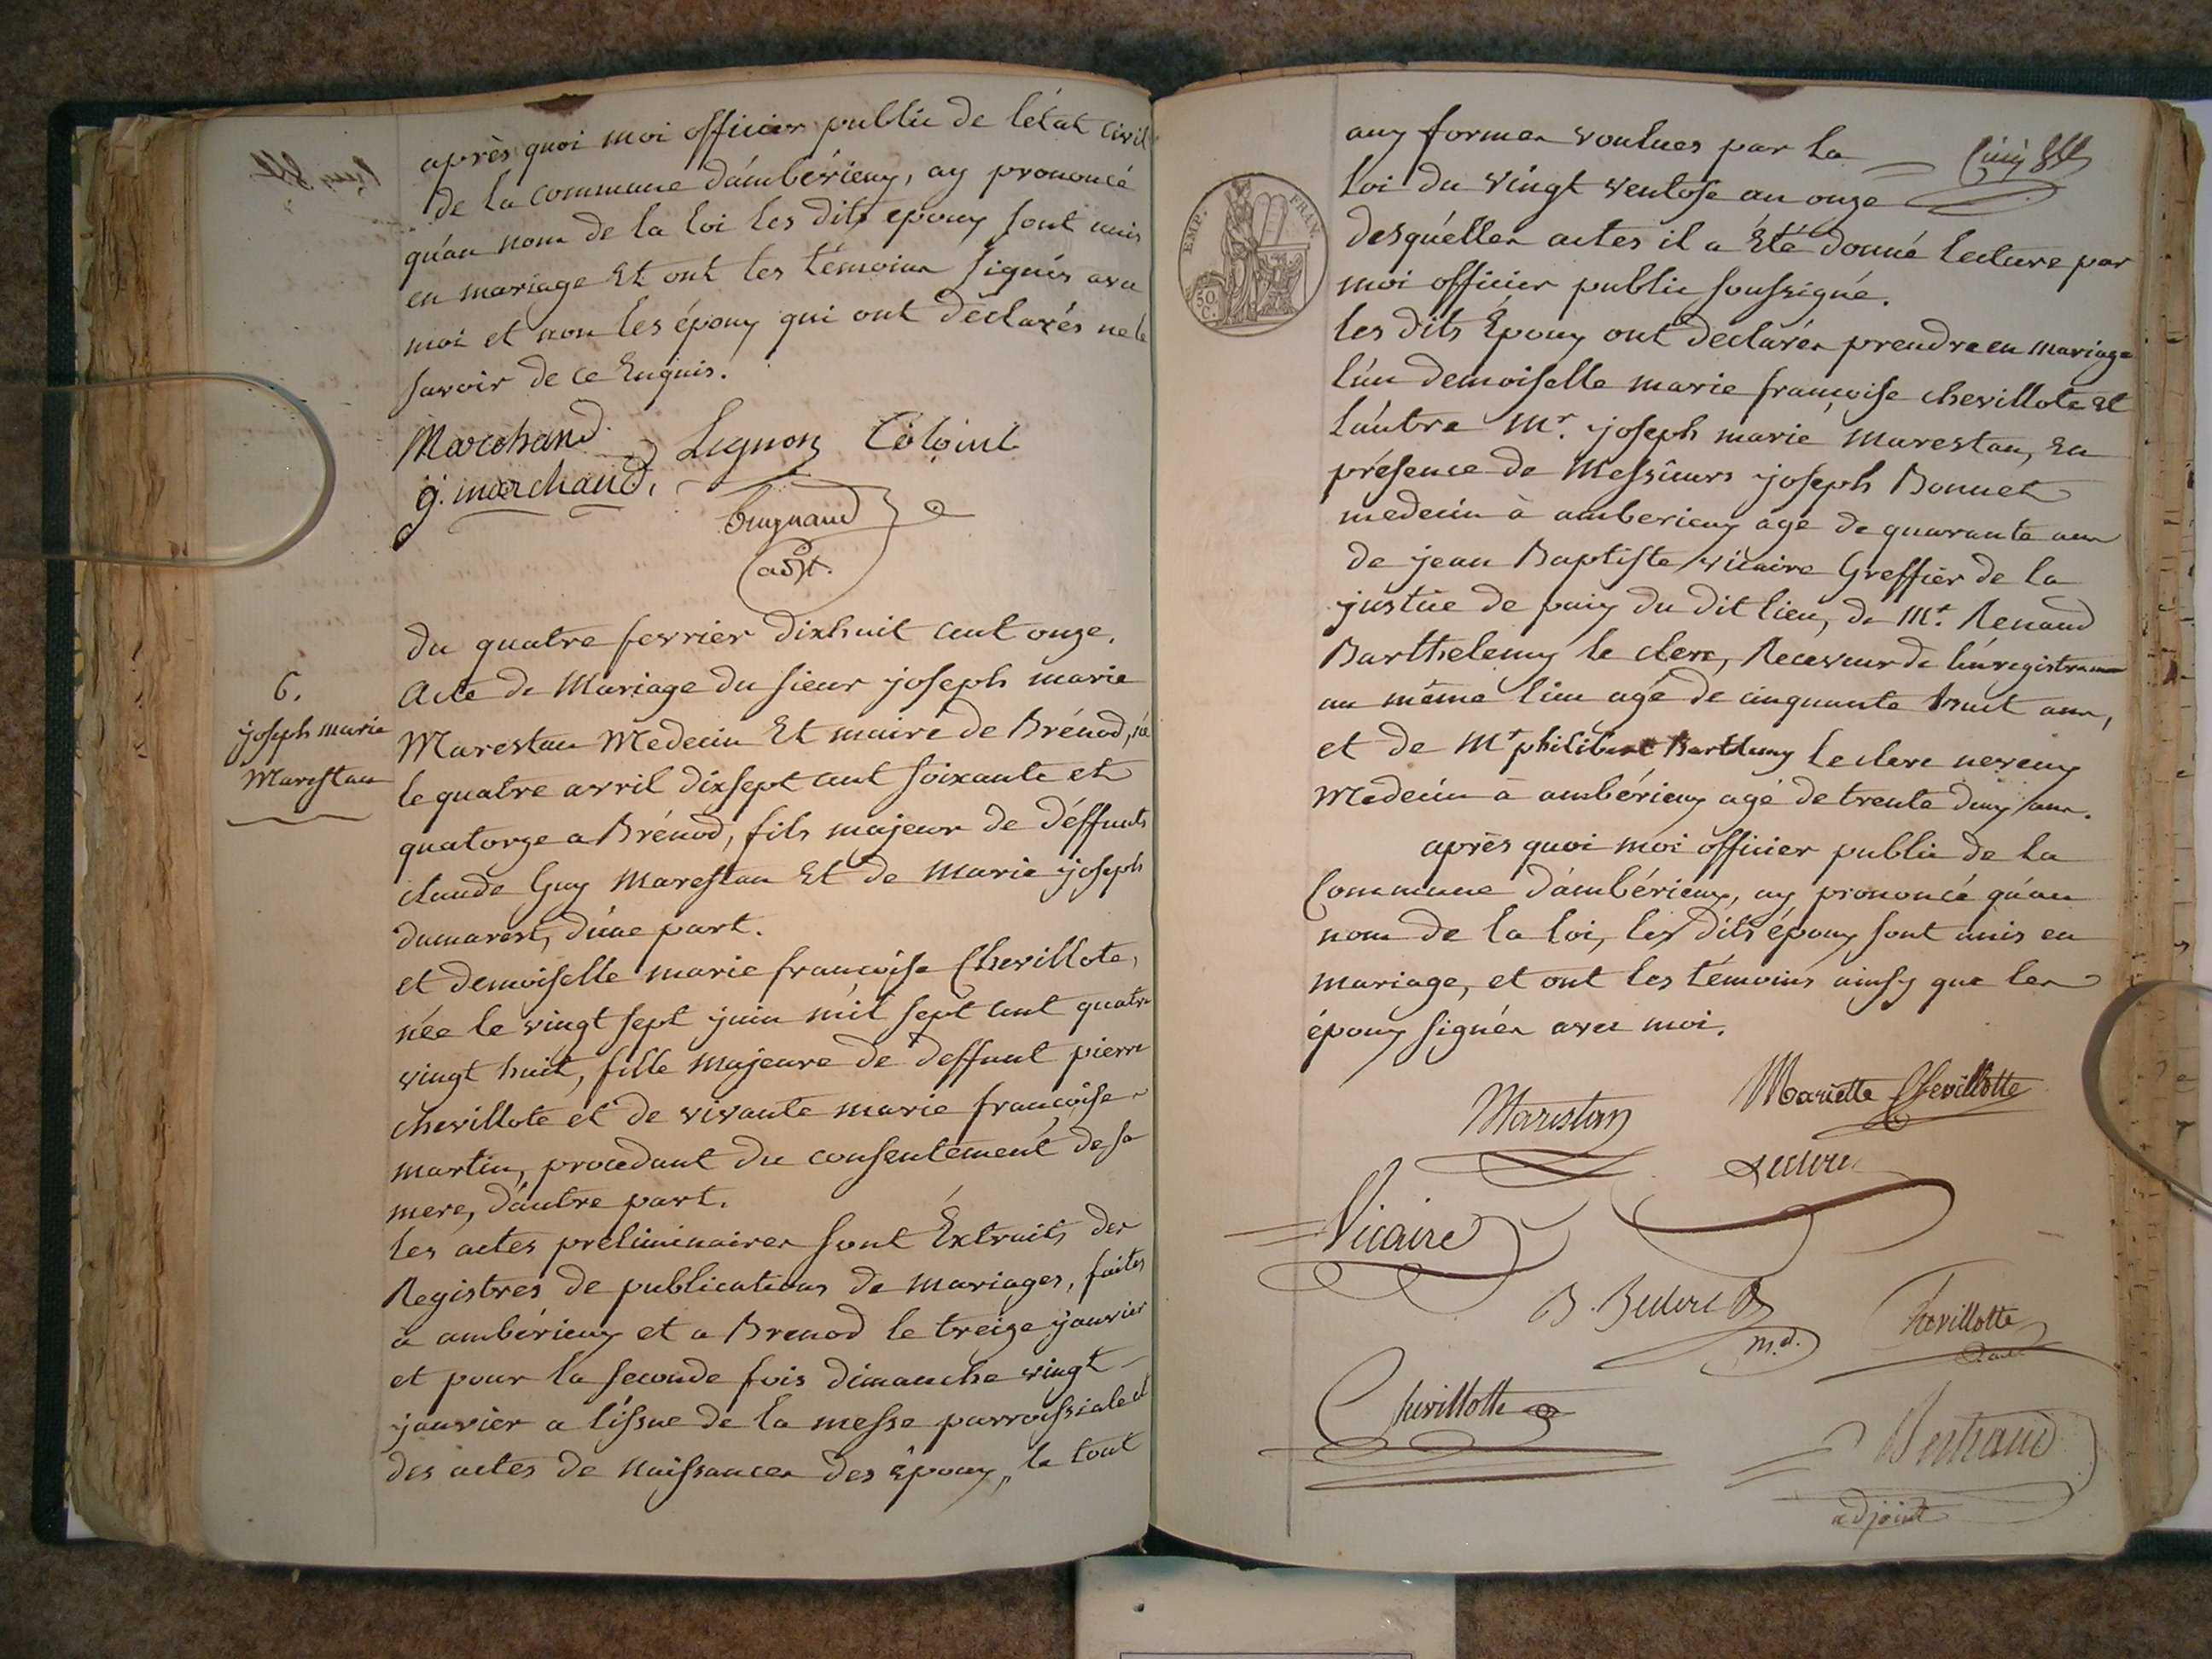 après quoi moi officier public de l'état civil
de la commune d'ambérieux, ay prononcé
qu'au nom de la loi les dits epoux sont unis
en mariage Et ont les témoins signés avec
moi et non les époux qui ont déclarés ne le
savoir de ce Enquis.
Marchand Lignon
g. marchand.
adjt.
6.
joseph marie
Marestan
du quatre fevrier dixhuit cent onze.
Acte de Mariage du sieur joseph marie
Marestan Medecin Et maire de Brénod, né
le quatre avril dixsept cent soixante et
quatorze a Brénod, fils majeur de déffunts
claude Guy Marestan Et de Marie joseph
dumarest, d'une part.
et demoiselle marie françoise Chevillote,
née le vingt sept juin mil sept cent quatre
vingt huit, fille majeure de deffunt pierre
chevillote et de vivante marie françoise
martin, procedant du consentement de sa
mere, d'autre part.
les actes preliminaires sont Extraits des
Registres de publications de mariages, faites
à ambérieux et a Brenod le treize janvier
et pour la seconde fois dimanche vingt
janvier a l'issue de la messe parroissiale et
des actes de naissances des époux, le tout
aux formes voulues par la
loi du vingt ventose an onze
EMP. FRAN.
50 C.
desquelles actes il a Eté donné lecture par
moi officier public soussigné.
les dits Epoux ont déclarés prendre en mariage
l'un demoiselle marie françoise chevillote Et
l'autre Mr. joseph marie marestan, En
présence de Messieurs joseph Bonnet
medecin à amberieux agé de quarante ans
de jean Baptiste vicaire Greffier de la
justice de paix du dit lieu, de Mr. Renaud
Barthelemy le clerc, Receveur de l'enregistrement
au même lieu agé de cinquante huit ans,
et de Mr philibert Barthelemy Leclerc neveux
Medecin à ambérieux agé de trente deux ans.
après quoi moi officier public de la
Commune d'ambérieux, ay prononcé qu'au
nom de la loi, les dits époux sont unis en
mariage, et ont les témoins ainsy que les
époux signés avec moi.
Marestan Mariette Chevillotte
Leclerc
Vicaire
B. Leclerc
m.d.
Chevillotte
Chevillotte
adjoint